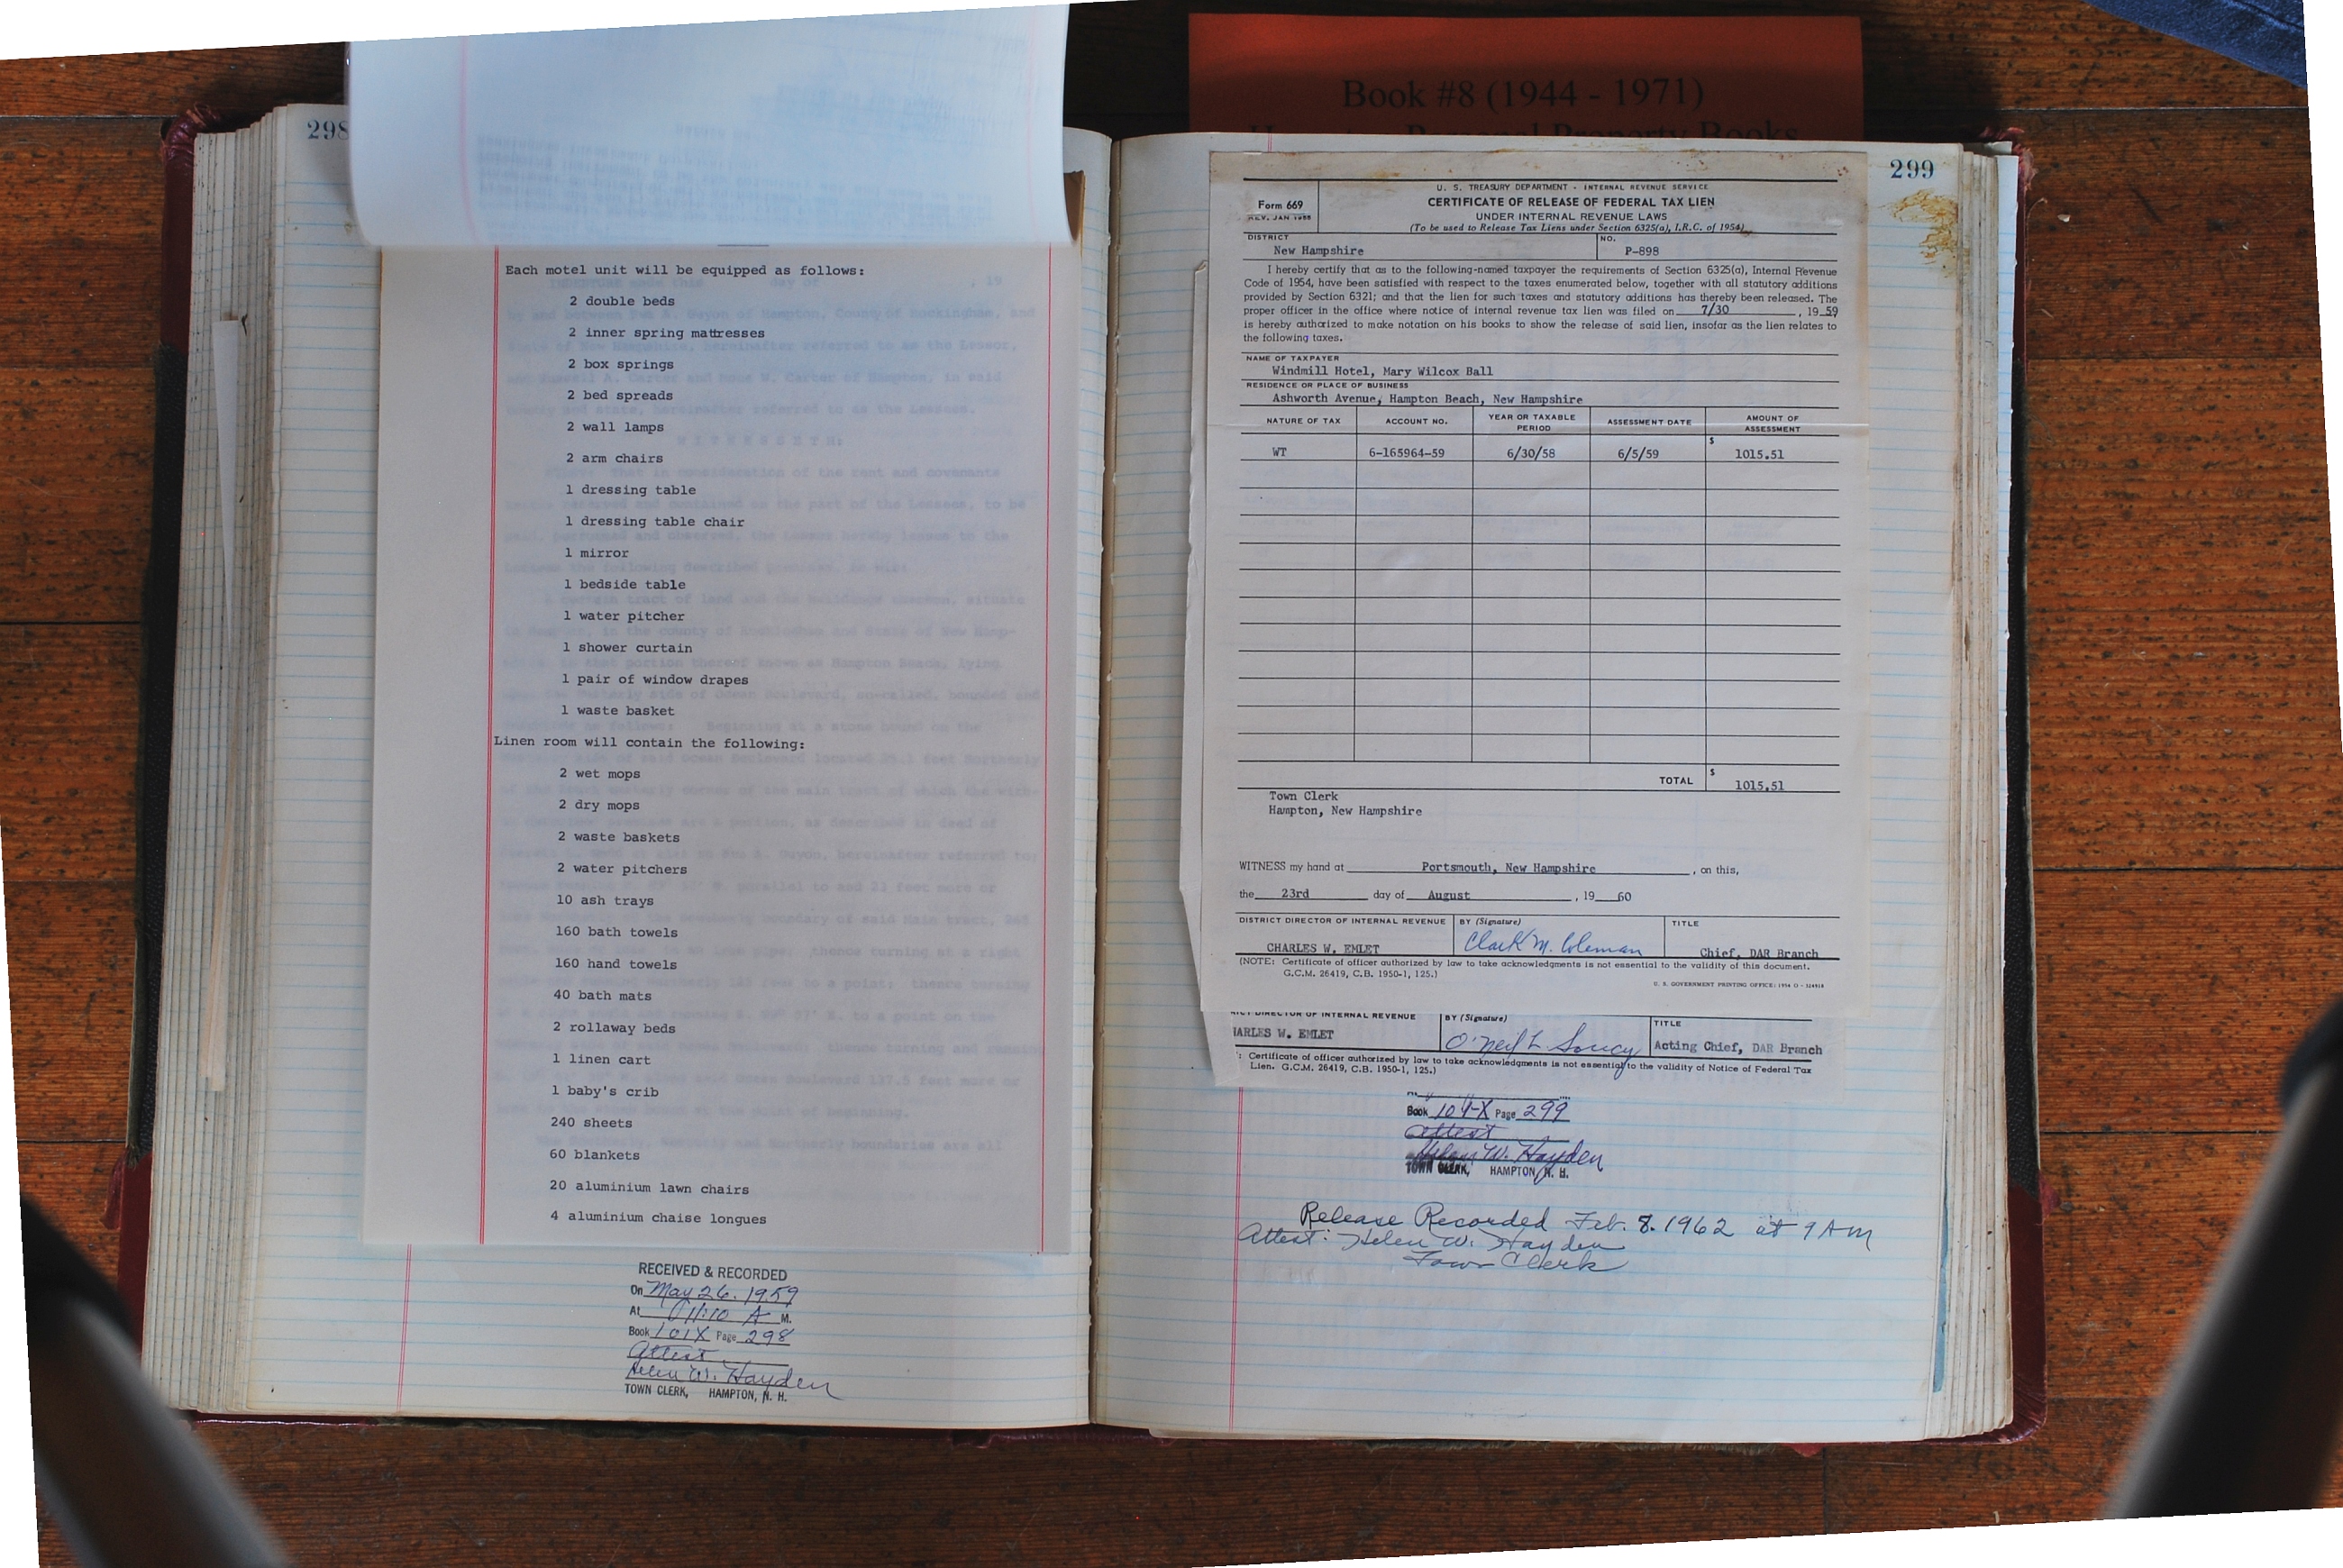 Book #8 (1944 - 1971)
Personal Property Books
298
Each motel unit will be equipped as follows:
2 double beds
2 inner spring mattresses
2 box springs
2 bed spreads
2 wall lamps
2 arm chairs
1 dressing table
1 dressing table chair
1 mirror
1 bedside table
1 water pitcher
1 shower curtain
1 pair of window drapes
1 waste basket
Linen room will contain the following:
2 wet mops
2 dry mops
2 waste baskets
2 water pitchers
10 ash trays
160 bath towels
160 hand towels
40 bath mats
2 rollaway beds
1 linen cart
1 baby's crib
240 sheets
60 blankets
20 aluminium lawn chairs
4 aluminium chaise longues
RECEIVED & RECORDED
On May 26. 1959
At 11:10 A M.
Book 101X Page 298
Attest
Helen W. Hayden
TOWN CLERK, HAMPTON, N. H.
299
Form 669
REV. JAN 1955
U. S. TREASURY DEPARTMENT - INTERNAL REVENUE SERVICE
CERTIFICATE OF RELEASE OF FEDERAL TAX LIEN
UNDER INTERNAL REVENUE LAWS
(To be used to Release Tax Liens under Section 6325(a), I.R.C. of 1954)
DISTRICT
New Hampshire
NO.
P-898
I hereby certify that as to the following-named taxpayer the requirements of Section 6325(a), Internal Revenue
Code of 1954, have been satisfied with respect to the taxes enumerated below, together with all statutory additions
provided by Section 6321; and that the lien for such taxes and statutory additions has thereby been released. The
proper officer in the office where notice of internal revenue tax lien was filed on 7/30, 19 59
is hereby authorized to make notation on his books to show the release of said lien, insofar as the lien relates to
the following taxes.
NAME OF TAXPAYER
Windmill Hotel, Mary Wilcox Ball
RESIDENCE OR PLACE OF BUSINESS
Ashworth Avenue, Hampton Beach, New Hampshire
NATURE OF TAX ACCOUNT NO. YEAR OR TAXABLE PERIOD ASSESSMENT DATE AMOUNT OF ASSESSMENT
WT 6-165964-59 6/30/58 6/5/59 $ 1015.51
TOTAL $ 1015.51
Town Clerk
Hampton, New Hampshire
WITNESS my hand at Portsmouth, New Hampshire, on this,
the 23rd day of August, 19 60
DISTRICT DIRECTOR OF INTERNAL REVENUE BY (Signature) TITLE
CHARLES W. EMLET Clark M. Coleman Chief, DAR Branch
(NOTE: Certificate of officer authorized by law to take acknowledgments is not essential to the validity of this document.
G.C.M. 26419, C.B. 1950-1, 125.)
U. S. GOVERNMENT PRINTING OFFICE: 1954 O - 324918
DIRECTOR OF INTERNAL REVENUE BY (Signature) TITLE
HARLES W. EMLET O'Neil L Soucy Acting Chief, DAR Branch
: Certificate of officer authorized by law to take acknowledgments is not essential to the validity of Notice of Federal Tax
Lien. G.C.M. 26419, C.B. 1950-1, 125.)
Book 101-X Page 299
Attest
Helen W. Hayden
TOWN CLERK, HAMPTON, N. H.
Release Recorded Feb. 8. 1962 at 9 AM
Attest: Helen W. Hayden
Town Clerk